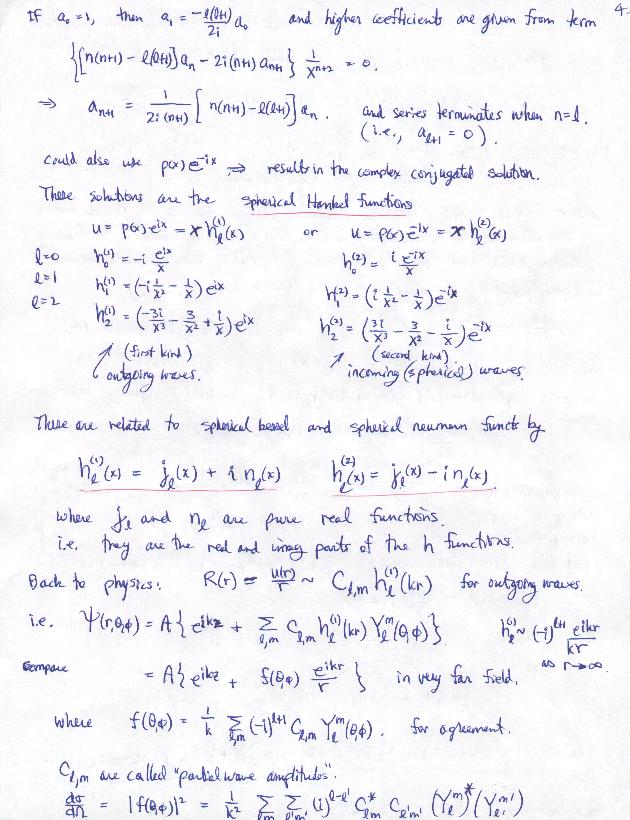 4.
If a₀=1, then a₁ = -l(l+1)/2i a₀ and higher coefficients are given from term
{[n(n+1) - l(l+1)]aₙ - 2i(n+1)aₙ₊₁} 1/xⁿ⁺² = 0.
⇒ aₙ₊₁ = 1/(2i(n+1)) [n(n+1) - l(l+1)]aₙ. and series terminates when n=l.
(i.e., a_{l+1} = 0).
Could also use p(x)e^{-ix} ⇒ results in the complex conjugated solution.
These solutions are the spherical Hankel functions
u = p(x)e^{ix} = x h_l^{(1)}(x) or u = p(x)e^{-ix} = x h_l^{(2)}(x)
l=0 h₀^{(1)} = -i e^{ix}/x h₀^{(2)} = i e^{-ix}/x
l=1 h₁^{(1)} = (-i 1/x² - 1/x)e^{ix} h₁^{(2)} = (i 1/x² - 1/x)e^{-ix}
l=2 h₂^{(1)} = (-3i/x³ - 3/x² + i/x)e^{ix} h₂^{(2)} = (3i/x³ - 3/x² - i/x)e^{-ix}
(first kind) (second kind)
outgoing waves. incoming (spherical) waves.
These are related to spherical bessel and spherical neumann functs by
h_l^{(1)}(x) = j_l(x) + i n_l(x) h_l^{(2)}(x) = j_l(x) - i n_l(x)
where j_l and n_l are pure real functions.
i.e. they are the real and imag parts of the h functions.
Back to physics: R(r) = u(r)/r ~ C_{l,m} h_l^{(1)}(kr) for outgoing waves.
i.e. Ψ(r,θ,φ) = A{e^{ikz} + Σ_{l,m} C_{l,m} h_l^{(1)}(kr) Y_l^m(θ,φ)} h_l^{(1)} ~ (-i)^{l+1} e^{ikr}/kr
as r→∞
Compare = A{e^{ikz} + f(θ,φ) e^{ikr}/r} in very far field.
where f(θ,φ) = 1/k Σ_{l,m} (-i)^{l+1} C_{l,m} Y_l^m(θ,φ). for agreement.
C_{l,m} are called "partial wave amplitudes".
dσ/dΩ = |f(θ,φ)|² = 1/k² Σ_{l,m} Σ_{l'm'} (i)^{l-l'} C*_{l,m} C_{l'm'} (Y_l^m)* (Y_{l'}^{m'})